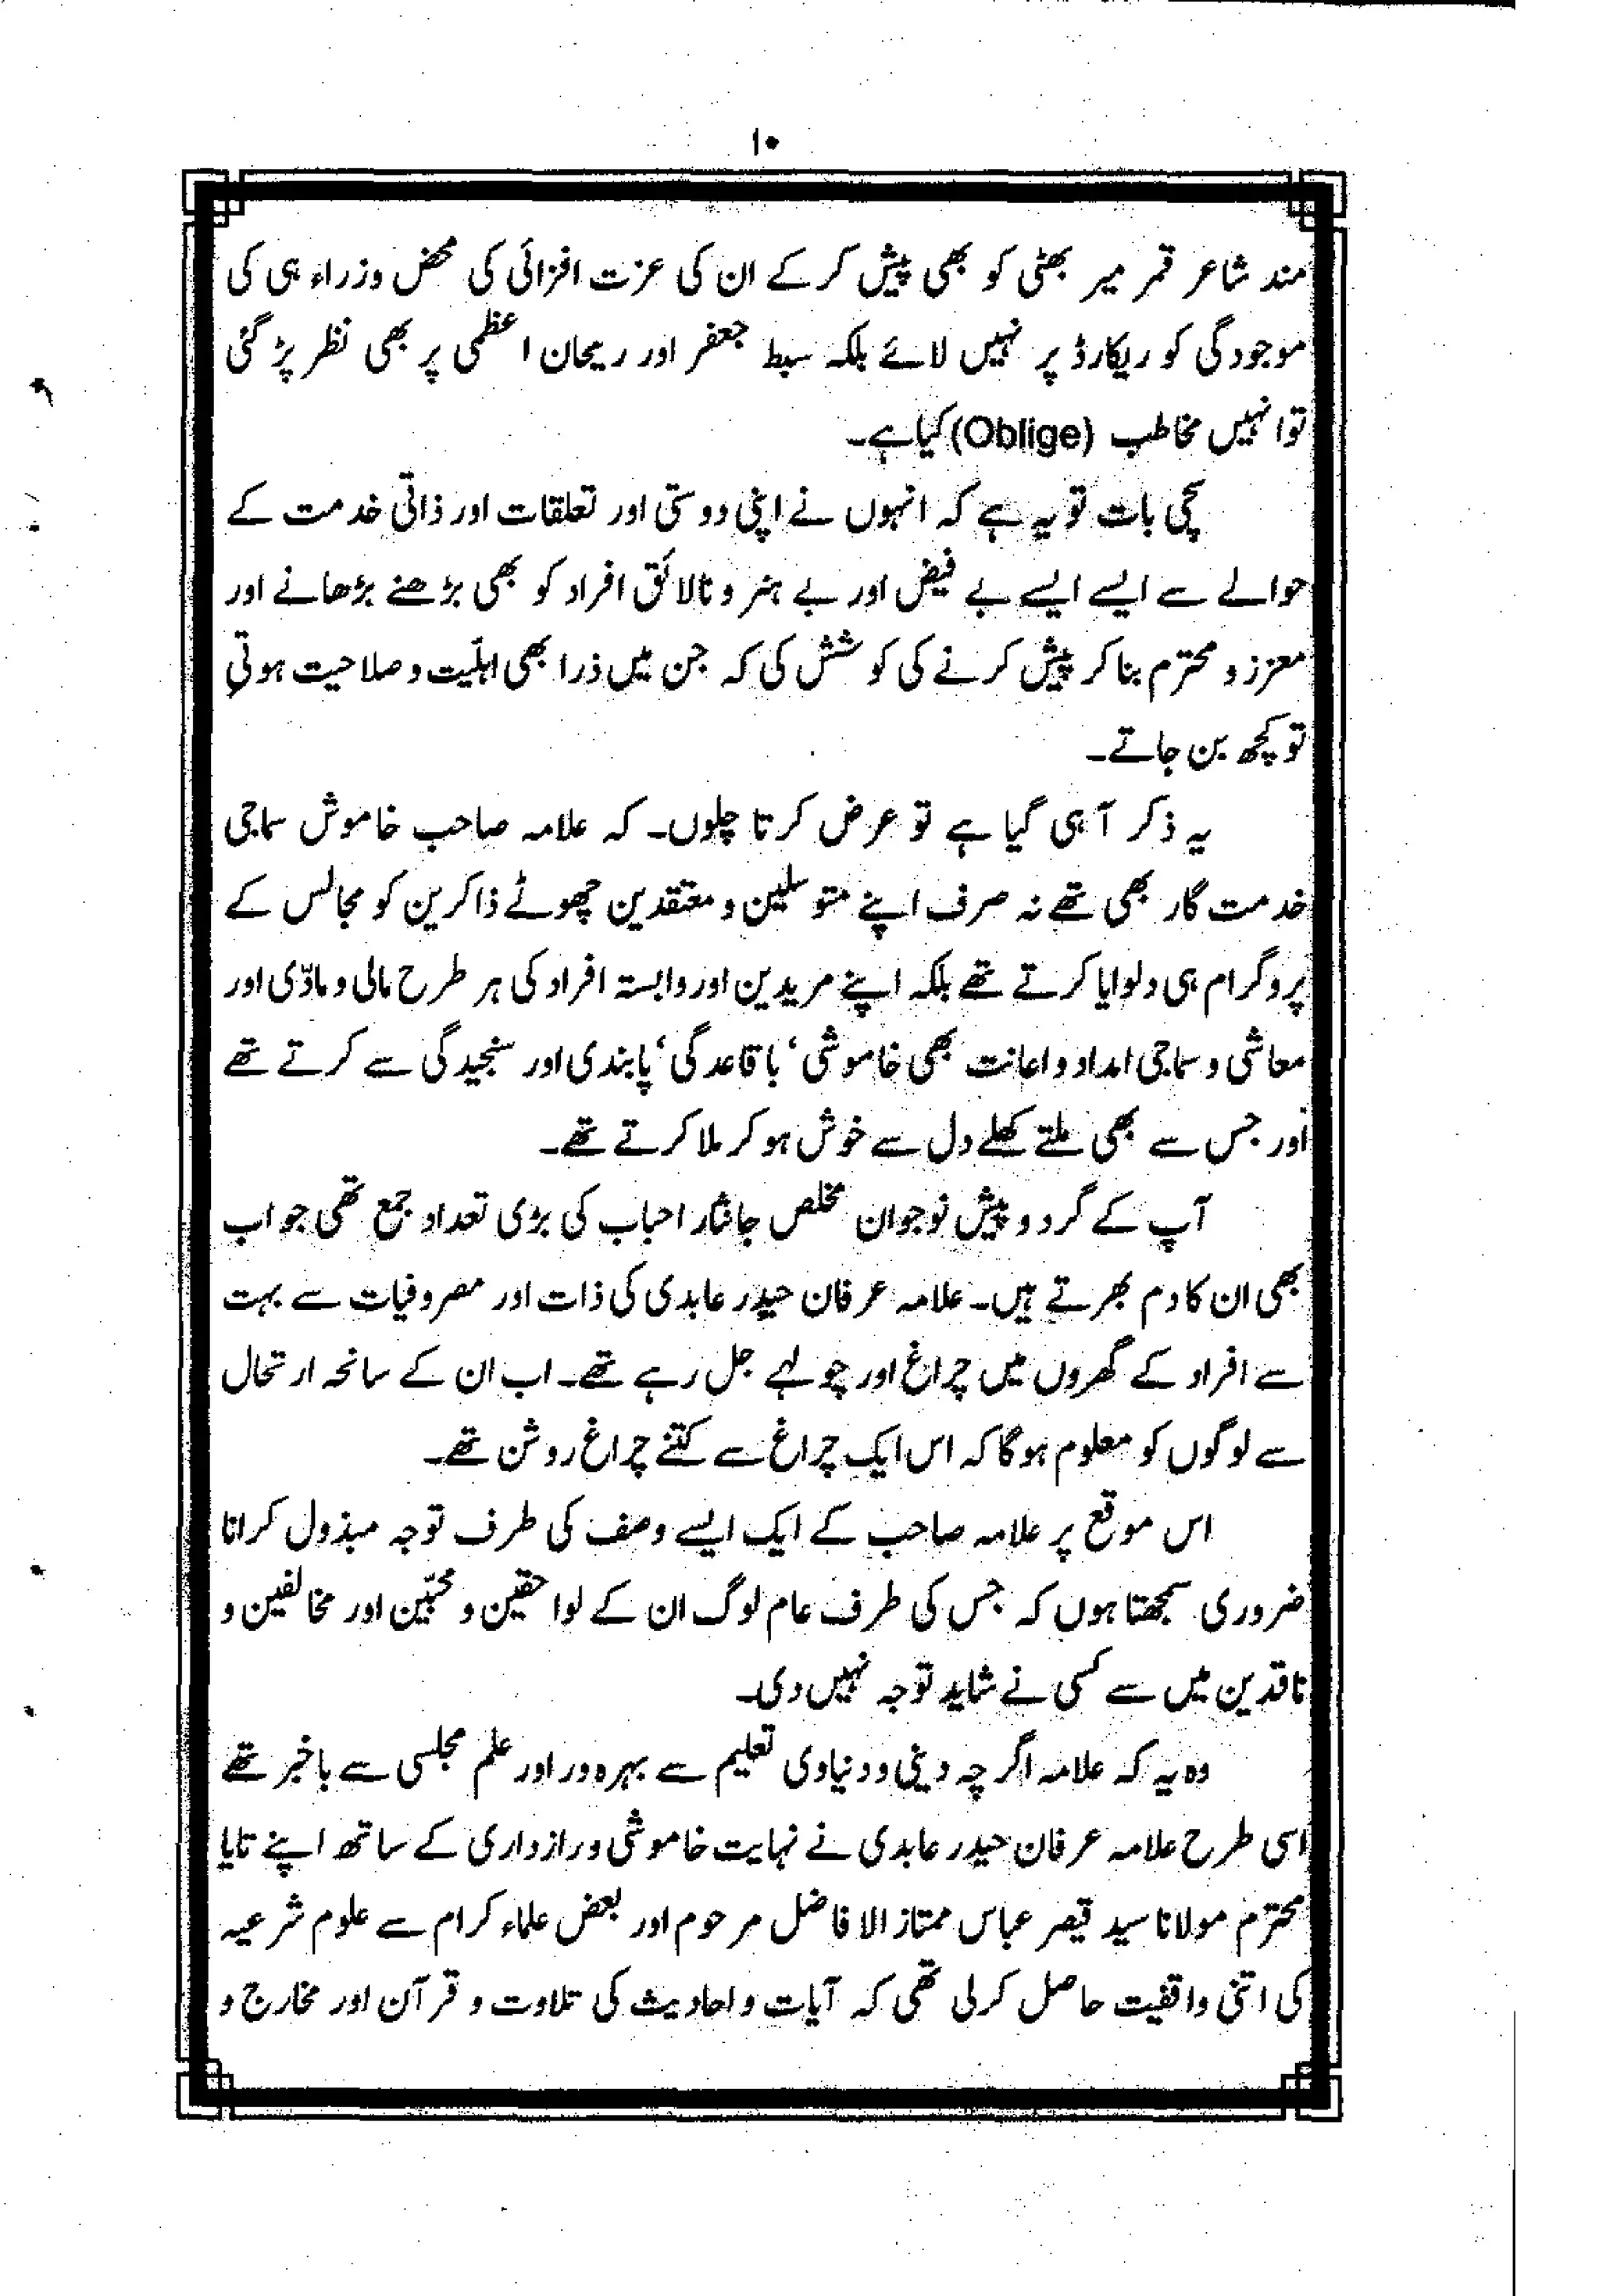 ۱۰
مند شاعر قمر میر بھٹی کو بھی پیش کر کے ان کی عزت افزائی کی محض وزراء ہی کی
موجودگی کو ریکارڈ پر نہیں لائے بلکہ سبط جعفر اور ریحان اعظمی پر بھی نظر پڑ گئی
توانہیں مخاطب (Oblige) کیا ہے۔
سچی بات تو یہ ہے کہ انہوں نے اپنی دوستی اور تعلقات اور ذاتی خدمت کے
حوالے سے ایسے ایسے بے فیض اور بے ہنر و نالائق افراد کو بھی بڑھنے بڑھانے اور
معزز و محترم بنا کر پیش کرنے کی کوشش کی کہ جن میں ذرا بھی اہلیت و صلاحیت ہوتی
تو کچھ بن جاتے۔
یہ ذکر آ ہی گیا ہے تو عرض کرتا چلوں۔ کہ علامہ صاحب خاموش سماجی
خدمت گار بھی تھے نہ صرف اپنے متوسلین و معتقدین چھوٹے ذاکرین کو مجالس کے
پروگرام ہی دلوایا کرتے تھے بلکہ اپنے مریدین اور وابستہ افراد کی ہر طرح مالی و مادّی اور
معاشی و سماجی امداد و اعانت بھی خاموشی‘ باقاعدگی‘ پابندی اور سنجیدگی سے کرتے تھے
اور جس سے بھی ملتے کھلے دل سے خوش ہو کر ملا کرتے تھے۔
آپ کے گرد و پیش نوجوان مخلص جانثار احباب کی بڑی تعداد جمع تھی جو اب
بھی ان کا دم بھرتے ہیں۔ علامہ عرفان حیدر عابدی کی ذات اور مصروفیات سے بہت
سے افراد کے گھروں میں چراغ اور چولہے جل رہے تھے۔ اب ان کے سانحہ ارتحال
سے لوگوں کو معلوم ہوگا کہ اس ایک چراغ سے کتنے چراغ روشن تھے۔
اس موقع پر علامہ صاحب کے ایک ایسے وصف کی طرف توجہ مبذول کرانا
ضروری سمجھتا ہوں کہ جس کی طرف عام لوگ ان کے لواحقین و محبّین اور مخالفین و
ناقدین میں سے کسی نے شاید توجہ نہیں دی۔
وہ یہ کہ علامہ اگر چہ دینی و دنیاوی تعلیم سے بہرہ ور اور علم مجلسی سے باخبر تھے
اسی طرح علامہ عرفان حیدر عابدی نے نہایت خاموشی و رازداری کے ساتھ اپنے تایا
محترم مولانا سید قیصر عباس ممتاز الافاضل مرحوم اور بعض علماء کرام سے علوم شرعیہ
کی اتنی واقفیت حاصل کر لی تھی کہ آیات و احادیث کی تلاوت و قرآن اور مخارج و